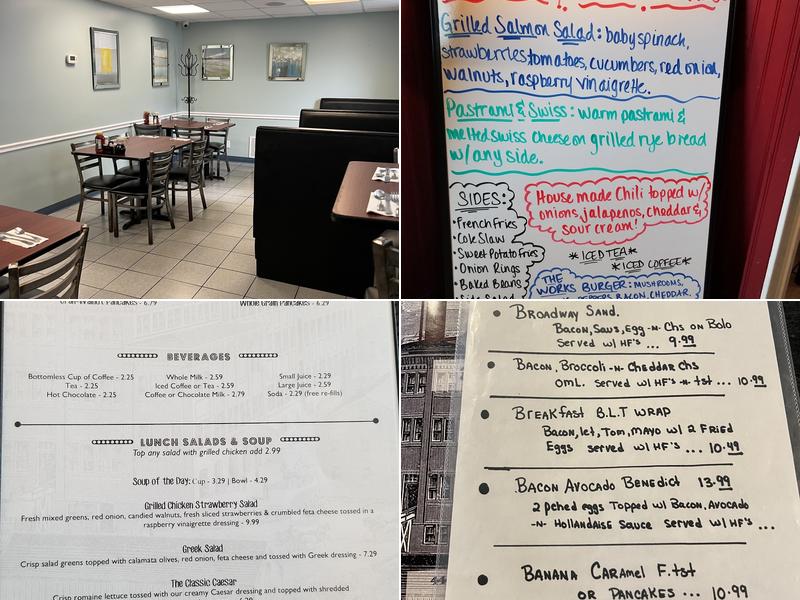 Grilled Salmon Salad: baby spinach,
strawberries, tomatoes, cucumbers, red onion,
walnuts, raspberry vinaigrette.
Pastrami & Swiss: warm pastrami &
melted swiss cheese on grilled rye bread
w/ any side.
SIDES:
• French Fries
• Cole Slaw
• Sweet Potato Fries
• Onion Rings
• Baked Beans
House made Chili topped w/
onions, jalapenos, cheddar &
sour cream!
*ICED TEA*
*ICED COFFEE*
THE
WORKS BURGER: MUSHROOMS,
BACON, CHEDDAR.
Pancakes - 6.79
Whole Grain Pancakes - 6.29
BEVERAGES
Bottomless Cup of Coffee - 2.25
Tea - 2.25
Hot Chocolate - 2.25
Whole Milk - 2.59
Iced Coffee or Tea - 2.59
Coffee or Chocolate Milk - 2.79
Small Juice - 2.29
Large Juice - 2.59
Soda - 2.29 (free re-fills)
LUNCH SALADS & SOUP
Top any salad with grilled chicken add 2.99
Soup of the Day: Cup - 3.29 | Bowl - 4.29
Grilled Chicken Strawberry Salad
Fresh mixed greens, red onion, candied walnuts, fresh sliced strawberries & crumbled feta cheese tossed in a
raspberry vinaigrette dressing - 9.99
Greek Salad
Crisp salad greens topped with calamata olives, red onion, feta cheese and tossed with Greek dressing - 7.29
The Classic Caesar
Crisp romaine lettuce tossed with our creamy Caesar dressing and topped with shredded
BROADWAY SAND.
BACON, SAUS, EGG -N- CHS ON BOLO
SERVED W/ HF'S ... 9.99
BACON, BROCCOLI -N- CHEDDAR CHS
OML. SERVED W/ HF'S -N- TST ... 10.99
BREAKFAST B.L.T WRAP
BACON, LET, TOM, MAYO W/ 2 FRIED
EGGS SERVED W/ HF'S ... 10.49
BACON AVOCADO BENEDICT 13.99
2 PCHED EGGS TOPPED W/ BACON, AVOCADO
-N- HOLLANDAISE SAUCE SERVED W/ HF'S ...
BANANA CARAMEL F.TST
OR PANCAKES ... 10.99